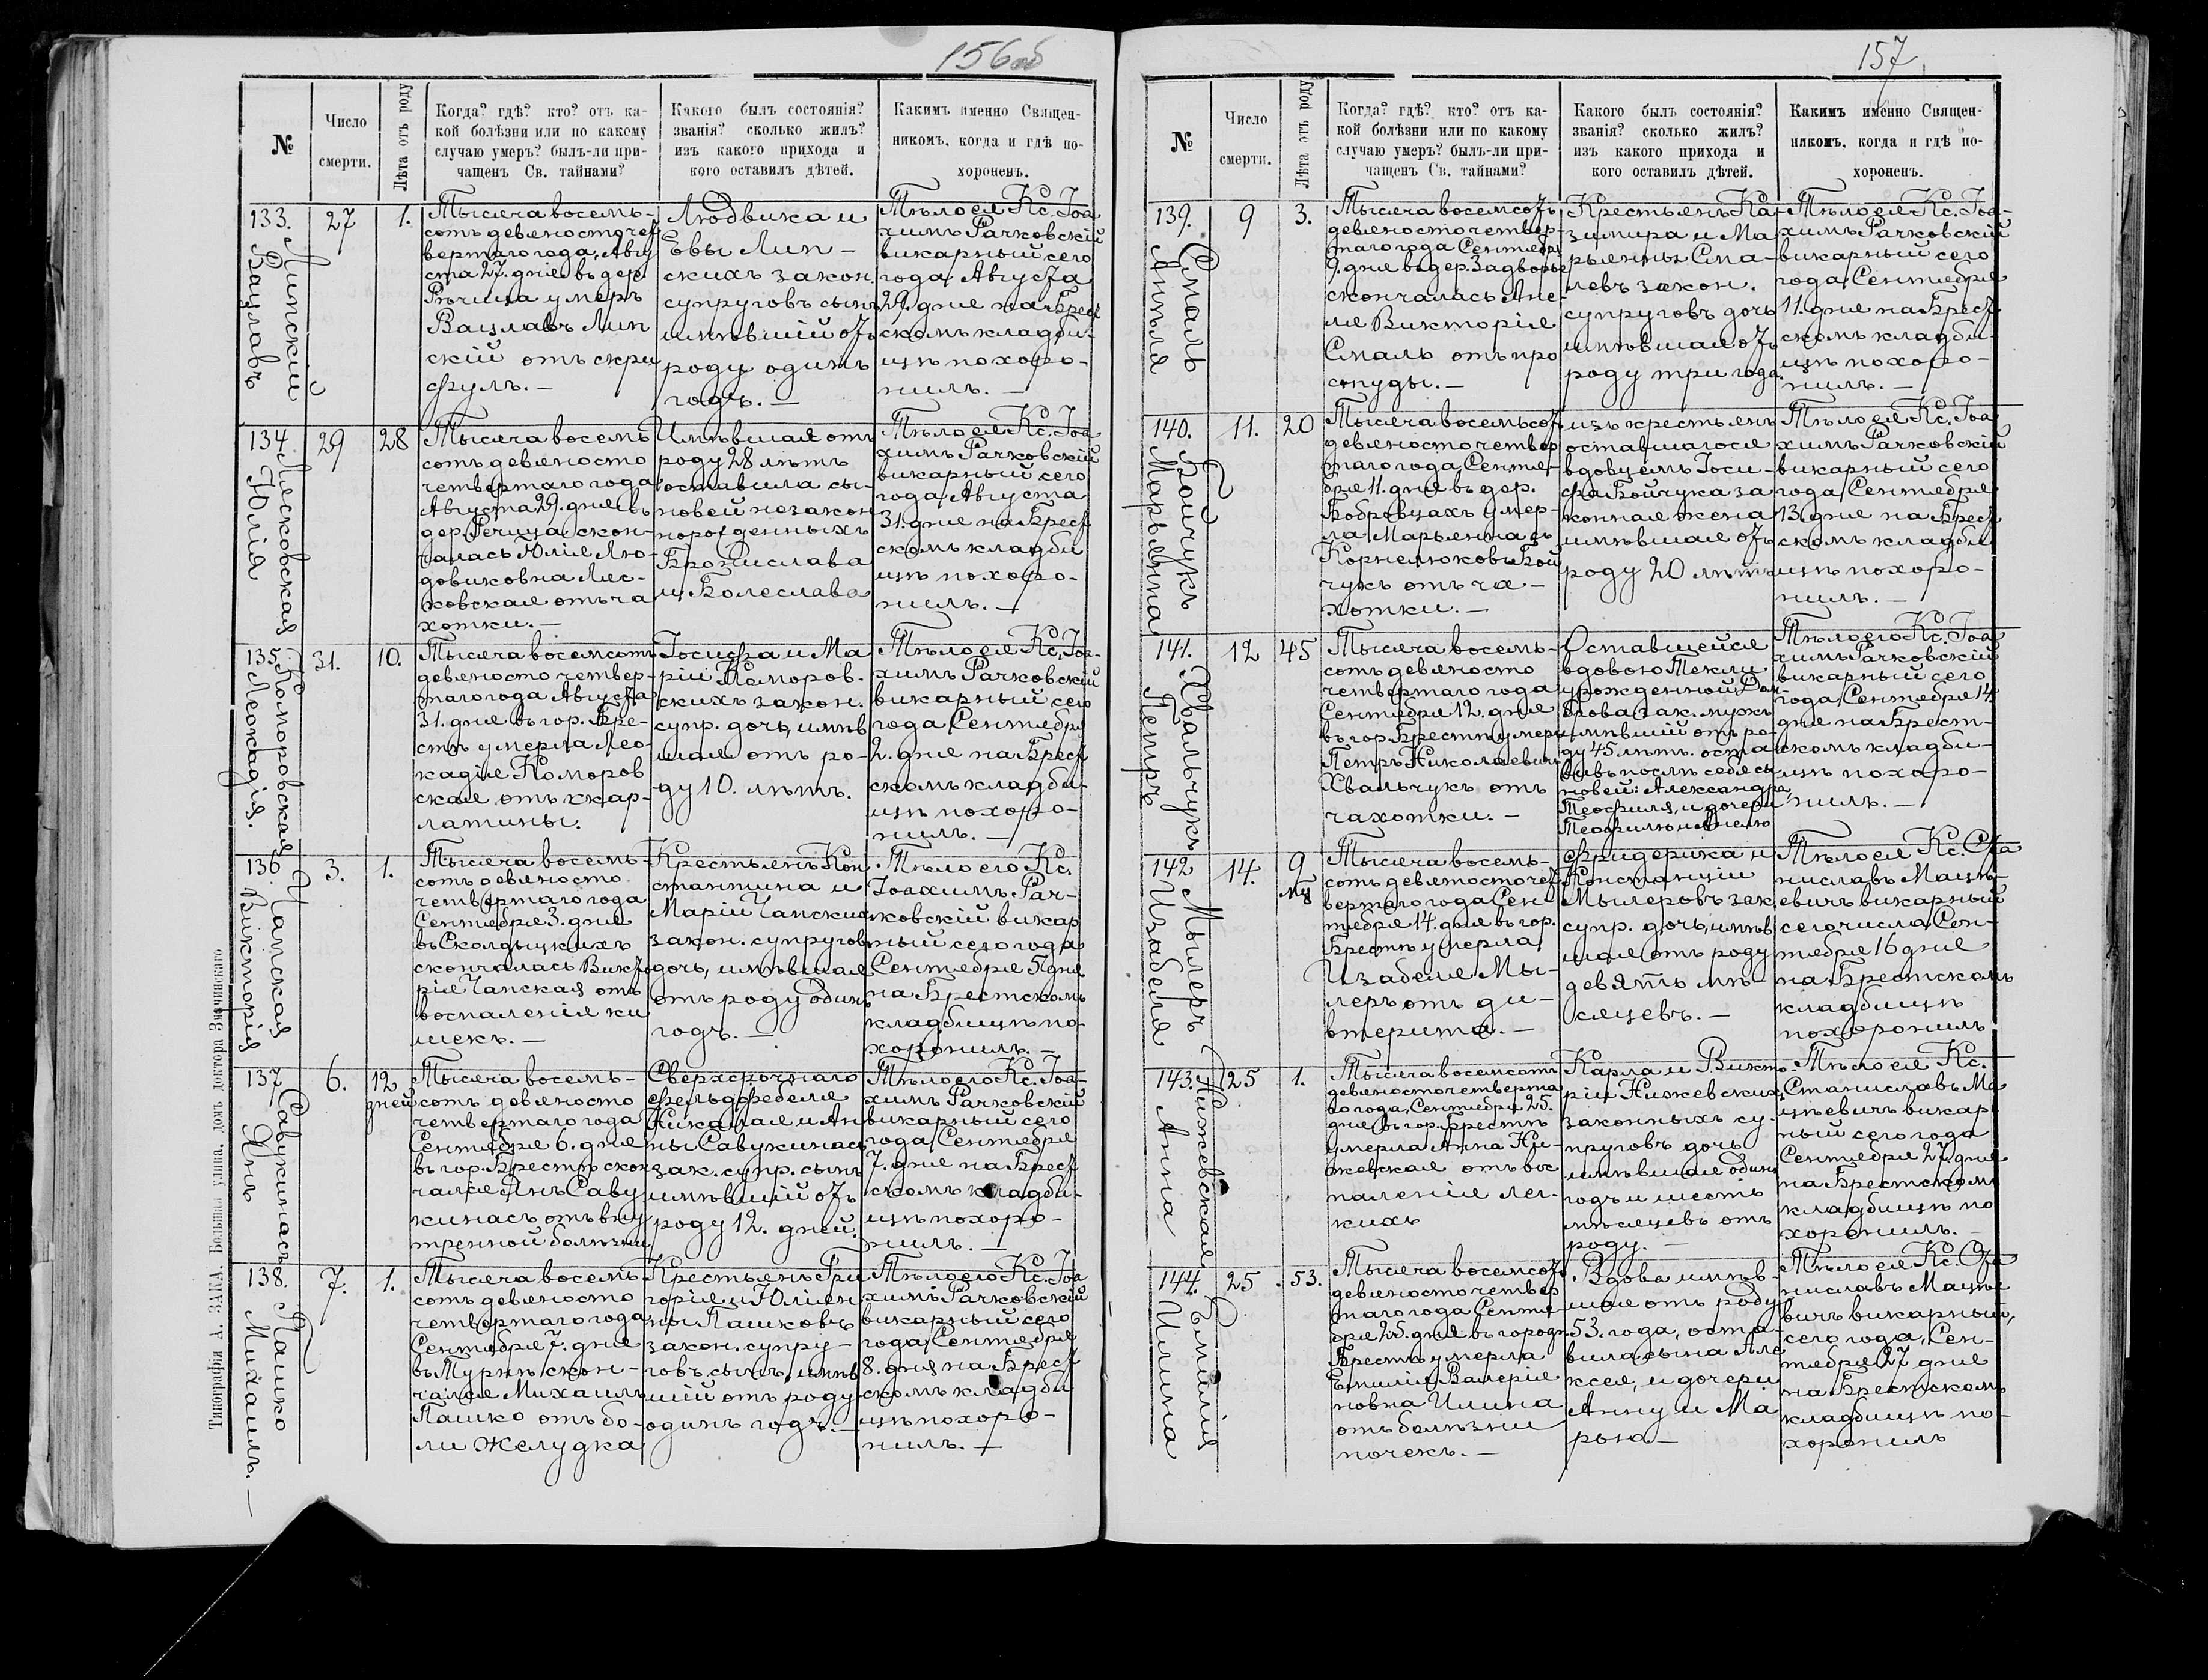 156 об
№
Число
смерти.
Лѣта отъ роду
Когда? гдѣ? кто? отъ ка-
кой болѣзни или по какому
случаю умеръ? былъ-ли при-
чащенъ Св. тайнами?
Какого былъ состоянія?
званія? сколько жилъ?
изъ какого прихода и
кого оставилъ дѣтей.
Какимъ именно Священ-
никомъ, когда и гдѣ по-
хороненъ.
133.
Липскій
Вацлавъ
27
1.
Тысяча восемь-
сотъ девяносто чет
вертаго года, Авгу
ста 27. дня въ дер.
Рѣчица умеръ
Вацлавъ Лип
скій отъ скри
фулъ. —
Людвика и
Евы Лип-
скихъ закон.
супруговъ сынъ
имѣвшій отъ
роду одинъ
годъ. —
Тѣло ея Кс. Іоа
химъ Рачковскій
викарный сего
года, Августа
29. дня на Брест
скомъ кладби-
щѣ похоро-
нилъ. —
134.
Лясковская
Юлія
29
28
Тысяча восемь
сотъ девяносто
четвертаго года
Августа 29. дня въ
дер. Речица скон-
чалась Юлія Лю-
довиковна Ляс-
ковская отъ ча
хотки. —
Имѣвшая отъ
роду 28 лѣтъ
оставила сы-
новей незакон
норожденныхъ
Бронислава
и Болеслава
Тѣло ея Кс. Іоа
химъ Рачковскій
викарный сего
года, Августа
31. дня на Брест
скомъ кладби
щѣ похоро-
нилъ. —
135.
Коморовская
Леокадія.
31.
10.
Тысяча восемсотъ
девяносто четвер-
таго года Августа
31. дня въ гор. Бре-
стѣ умерла Лео-
кадія Коморов
ская отъ скар-
латины.
Іосифа и Ма
ріи Коморов-
скихъ закон.
супр. дочь, имѣв
шая отъ ро-
ду 10. лѣтъ.
Тѣло ея Кс. Іоа-
химъ Рачковскій
викарный сего
года, Сентября
2. дня на Брест
скомъ кладби-
щѣ похоро-
нилъ. —
136
Чапская
Викторія
3.
1.
Тысяча восемь-
сотъ девяносто
четвертаго года
Сентября 3. дня
въ Сколдыцкихъ
скончалась Викто
рія Чапская отъ
воспаленія ки
шекъ. —
Крестьянъ Кон
стантина и
Маріи Чапскихъ
закон. супруговъ
дочь, имѣвшая
отъ роду одинъ
годъ. —
Тѣло его Кс.
Іоахимъ Рач-
ковскій викар
ный сего года
Сентября 5 дня
на Брестскомъ
кладбищѣ по-
хоронилъ. —
137
Савукинасъ
Янъ
6.
12
дней
Тысяча восемь-
сотъ девяносто
четвертаго года
Сентября 6. дня
въ гор. Брестѣ скон
чался Янъ Саву
кинасъ отъ вну
тренной болѣзни
Сверхсрочнаго
фельдфебеля
Николая и Ан
ны Савукинасъ
зак. супр. сынъ
имѣвшій отъ
роду 12. дней.
Тѣло его Кс. Іоа-
химъ Рачковскій
викарный сего
года, Сентября
7. дня на Брест
скомъ кладби-
щѣ похоро-
нилъ. —
138.
Пашко
Михаилъ. —
7.
1.
Тысяча восемь
сотъ девяносто
четвертаго года
Сентября 7. дня
въ Муринѣ скон-
чался Михаилъ
Пашко отъ бо-
ли желудка
Крестьянъ Гри
горія и Юліян
ны Пашковъ
закон. супру-
говъ сынъ, имѣв
шій отъ роду
одинъ годъ. —
Тѣло его Кс. Іоа
химъ Рачковскій
викарный сего
года, Сентября
8. дня на Брест
скомъ кладби
щѣ похоро-
нилъ. —
Типографія А. ЗАКА. Большая улица, домъ доктора Значинскаго
157
№
Число
смерти.
Лѣта отъ роду
Когда? гдѣ? кто? отъ ка-
кой болѣзни или по какому
случаю умеръ? былъ-ли при-
чащенъ Св. тайнами?
Какого былъ состоянія?
званія? сколько жилъ?
изъ какого прихода и
кого оставилъ дѣтей.
Какимъ именно Священ-
никомъ, когда и гдѣ по-
хороненъ.
139.
Смаль
Анѣля
9
3.
Тысяча восемсотъ
девяносто четвер-
таго года Сентября
9. дня въ дер. Задворье
скончалась Ане-
ля Викторія
Смаль отъ про
студы. —
Крестьянъ Ка
зимира и Ма
рьянны Сма-
левъ закон.
супруговъ дочь
имѣвшая отъ
роду три года.
Тѣло ея Кс. Іоа-
химъ Рачковскій
викарный сего
года, Сентября
11. дня на Брест
скомъ кладби-
щѣ похоро-
нилъ. —
140.
Бойчукъ
Марьянна
11.
20
Тысяча восемьсот
девяносто четвер
таго года, Сентя-
бря 11. дня въ дер.
Бобровцахъ умер-
ла Марьянна съ
Корнелюковъ Бой
чукъ отъ ча-
хотки. —
изъ крестьянъ
оставшагося
вдовцемъ Іоси-
фа Бойчука за
конная жена
имѣвшая отъ
роду 20 лѣтъ
Тѣло ея Кс. Іоа
химъ Рачковскій
викарный сего
года, Сентября
13. дня на Брест
скомъ кладби
щѣ похоро-
нилъ. —
141.
Хвальчукъ
Петръ
12
45
Тысяча восемь-
сотъ девяносто
четвертаго года
Сентября 12. дня
въ гор. Брестѣ умеръ
Петръ Николаевичъ
Хвальчукъ отъ
чахотки. —
Оставшейся
вдовою Текли
урожденной Дом-
брова зак. мужъ
имѣвшій отъ ро-
ду 45 лѣтъ. оста
вивъ послѣ себя сы
новей: Александра,
Теофиля, и дочери
Теофилю и Анелю
Тѣло его Кс. Іоа
химъ Рачковскій
викарный сего
года, Сентября 14
дня на Брест-
скомъ кладби-
щѣ похоро-
нилъ. —
142
Мылеръ
Изабеля
14.
9
мц
Тысяча восемь-
сотъ девятосто чет
вертаго года Сен-
тября 14. дня въ гор.
Брестѣ умерла
Изабеля Мы-
леръ отъ ди-
втерита. —
Фридерика и
Констанціи
Мылеровъ зак.
супр. дочь, имѣв
шая отъ роду
девять мѣ-
сяцевъ. —
Тѣло ея Кс. Ста
ниславъ Мацѣ-
евичъ викарный
сего числа, Сен-
тября 16 дня
на Брестскомъ
кладбищѣ
похоронилъ
143.
Нижевская
Анна
25
1.
Тысяча восемсотъ
девяносто четверта
го года, Сентября 25.
дня въ гор. Брестѣ
умерла Анна Ни-
жевская отъ вос
паленія лег-
кихъ
Карла и Викто
ріи Нижевскихъ
законныхъ су-
пруговъ дочь
имѣвшая одинъ
годъ и шесть
мѣсяцевъ отъ
роду. —
Тѣло ея Кс.
Станиславъ Ма
цѣевичъ викар
ный сего года
Сентября 27. дня
на Брестскомъ
кладбищѣ по
хоронилъ. —
144.
Емилія
Илина
25
53.
Тысяча восемсотъ
девяносто четвер
таго года Сентя-
бря 25. дня въ городѣ
Брестѣ умерла
Емилія Валерія
новна Илина
отъ болѣзни
почекъ. —
Вдова имѣв-
шая отъ роду
53. года, оста-
вила сына Але
ксея, и дочери
Анну и Ма
рью —
Тѣло ея Кс. Ста
ниславъ Мацѣе
вичъ викарный,
сего года, Сен-
тября 27 дня
на Брестскомъ
кладбищѣ по-
хоронилъ